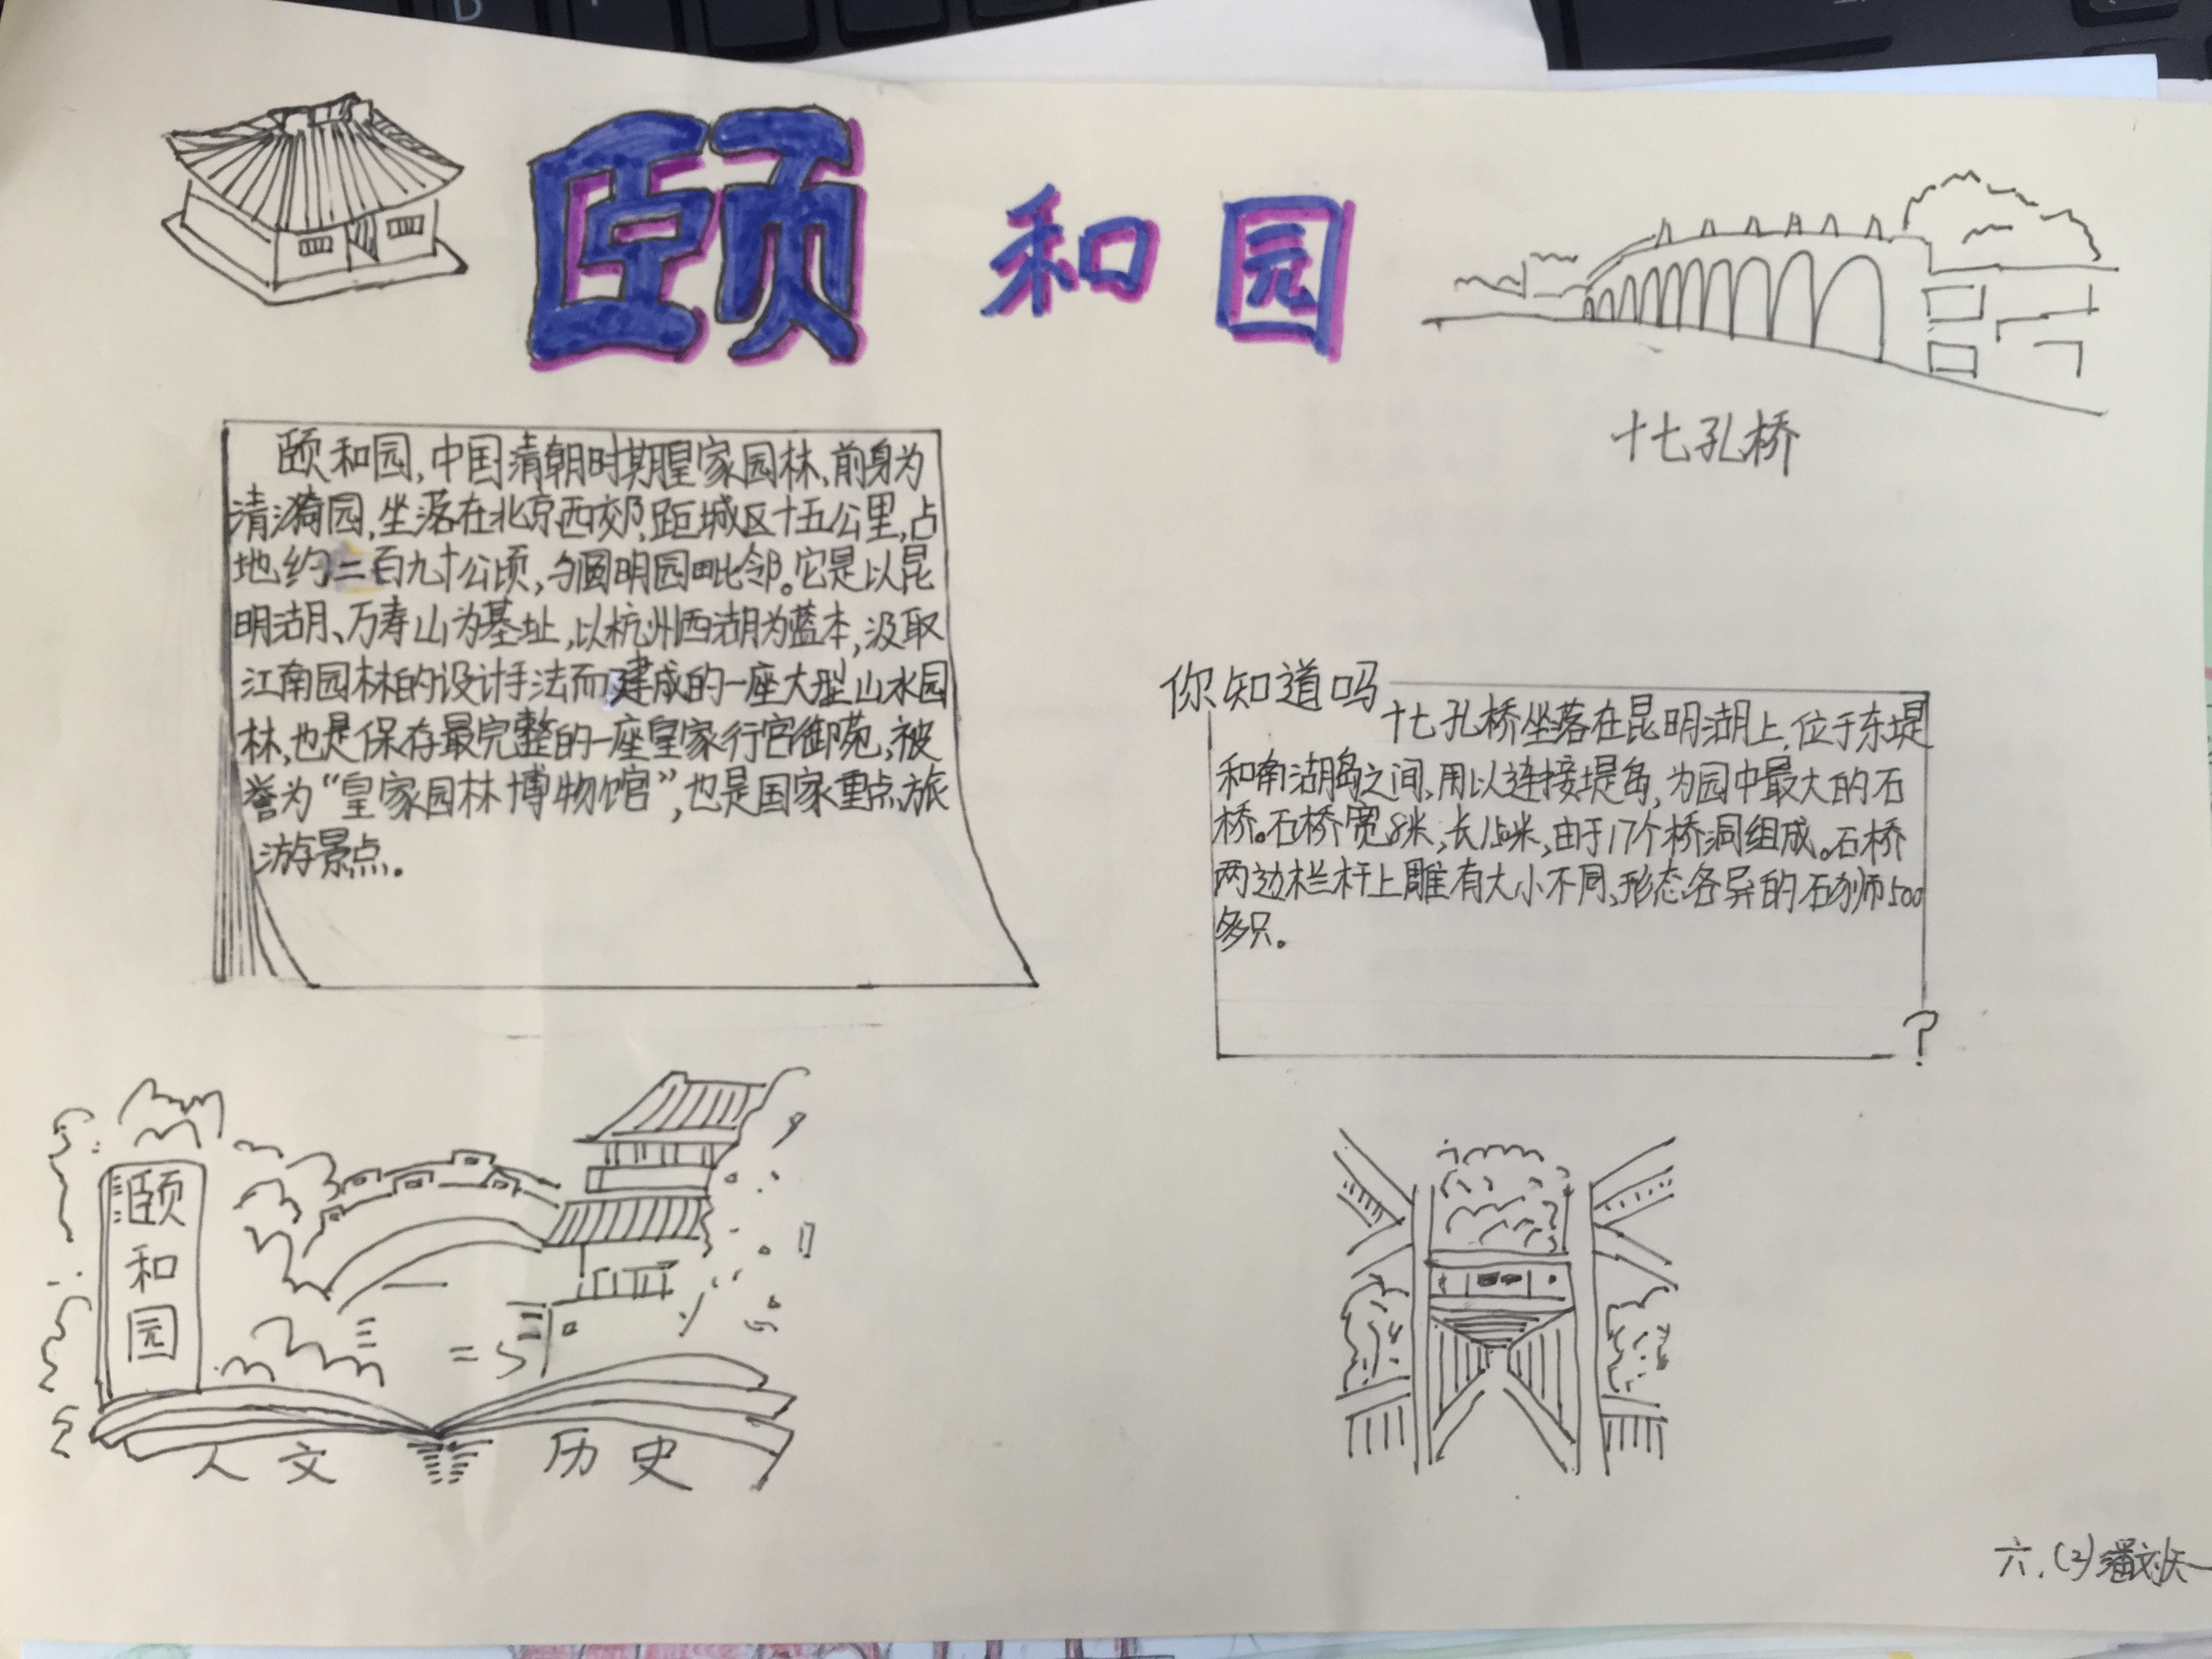 颐和园
十七孔桥
颐和园,中国清朝时期皇家园林,前身为
清漪园,坐落在北京西郊,距城区十五公里,占
地约二百九十公顷,与圆明园毗邻。它是以昆
明湖、万寿山为基址,以杭州西湖为蓝本,汲取
江南园林的设计手法而建成的一座大型山水园
林,也是保存最完整的一座皇家行宫御苑,被
誉为“皇家园林博物馆”,也是国家重点旅
游景点。
你知道吗
十七孔桥坐落在昆明湖上,位于东堤
和南湖岛之间,用以连接堤岛,为园中最大的石
桥。石桥宽8米,长150米,由于17个桥洞组成。石桥
两边栏杆上雕有大小不同,形态各异的石狮500
多只。
?
颐和园
人文 历史
六.(2)潘